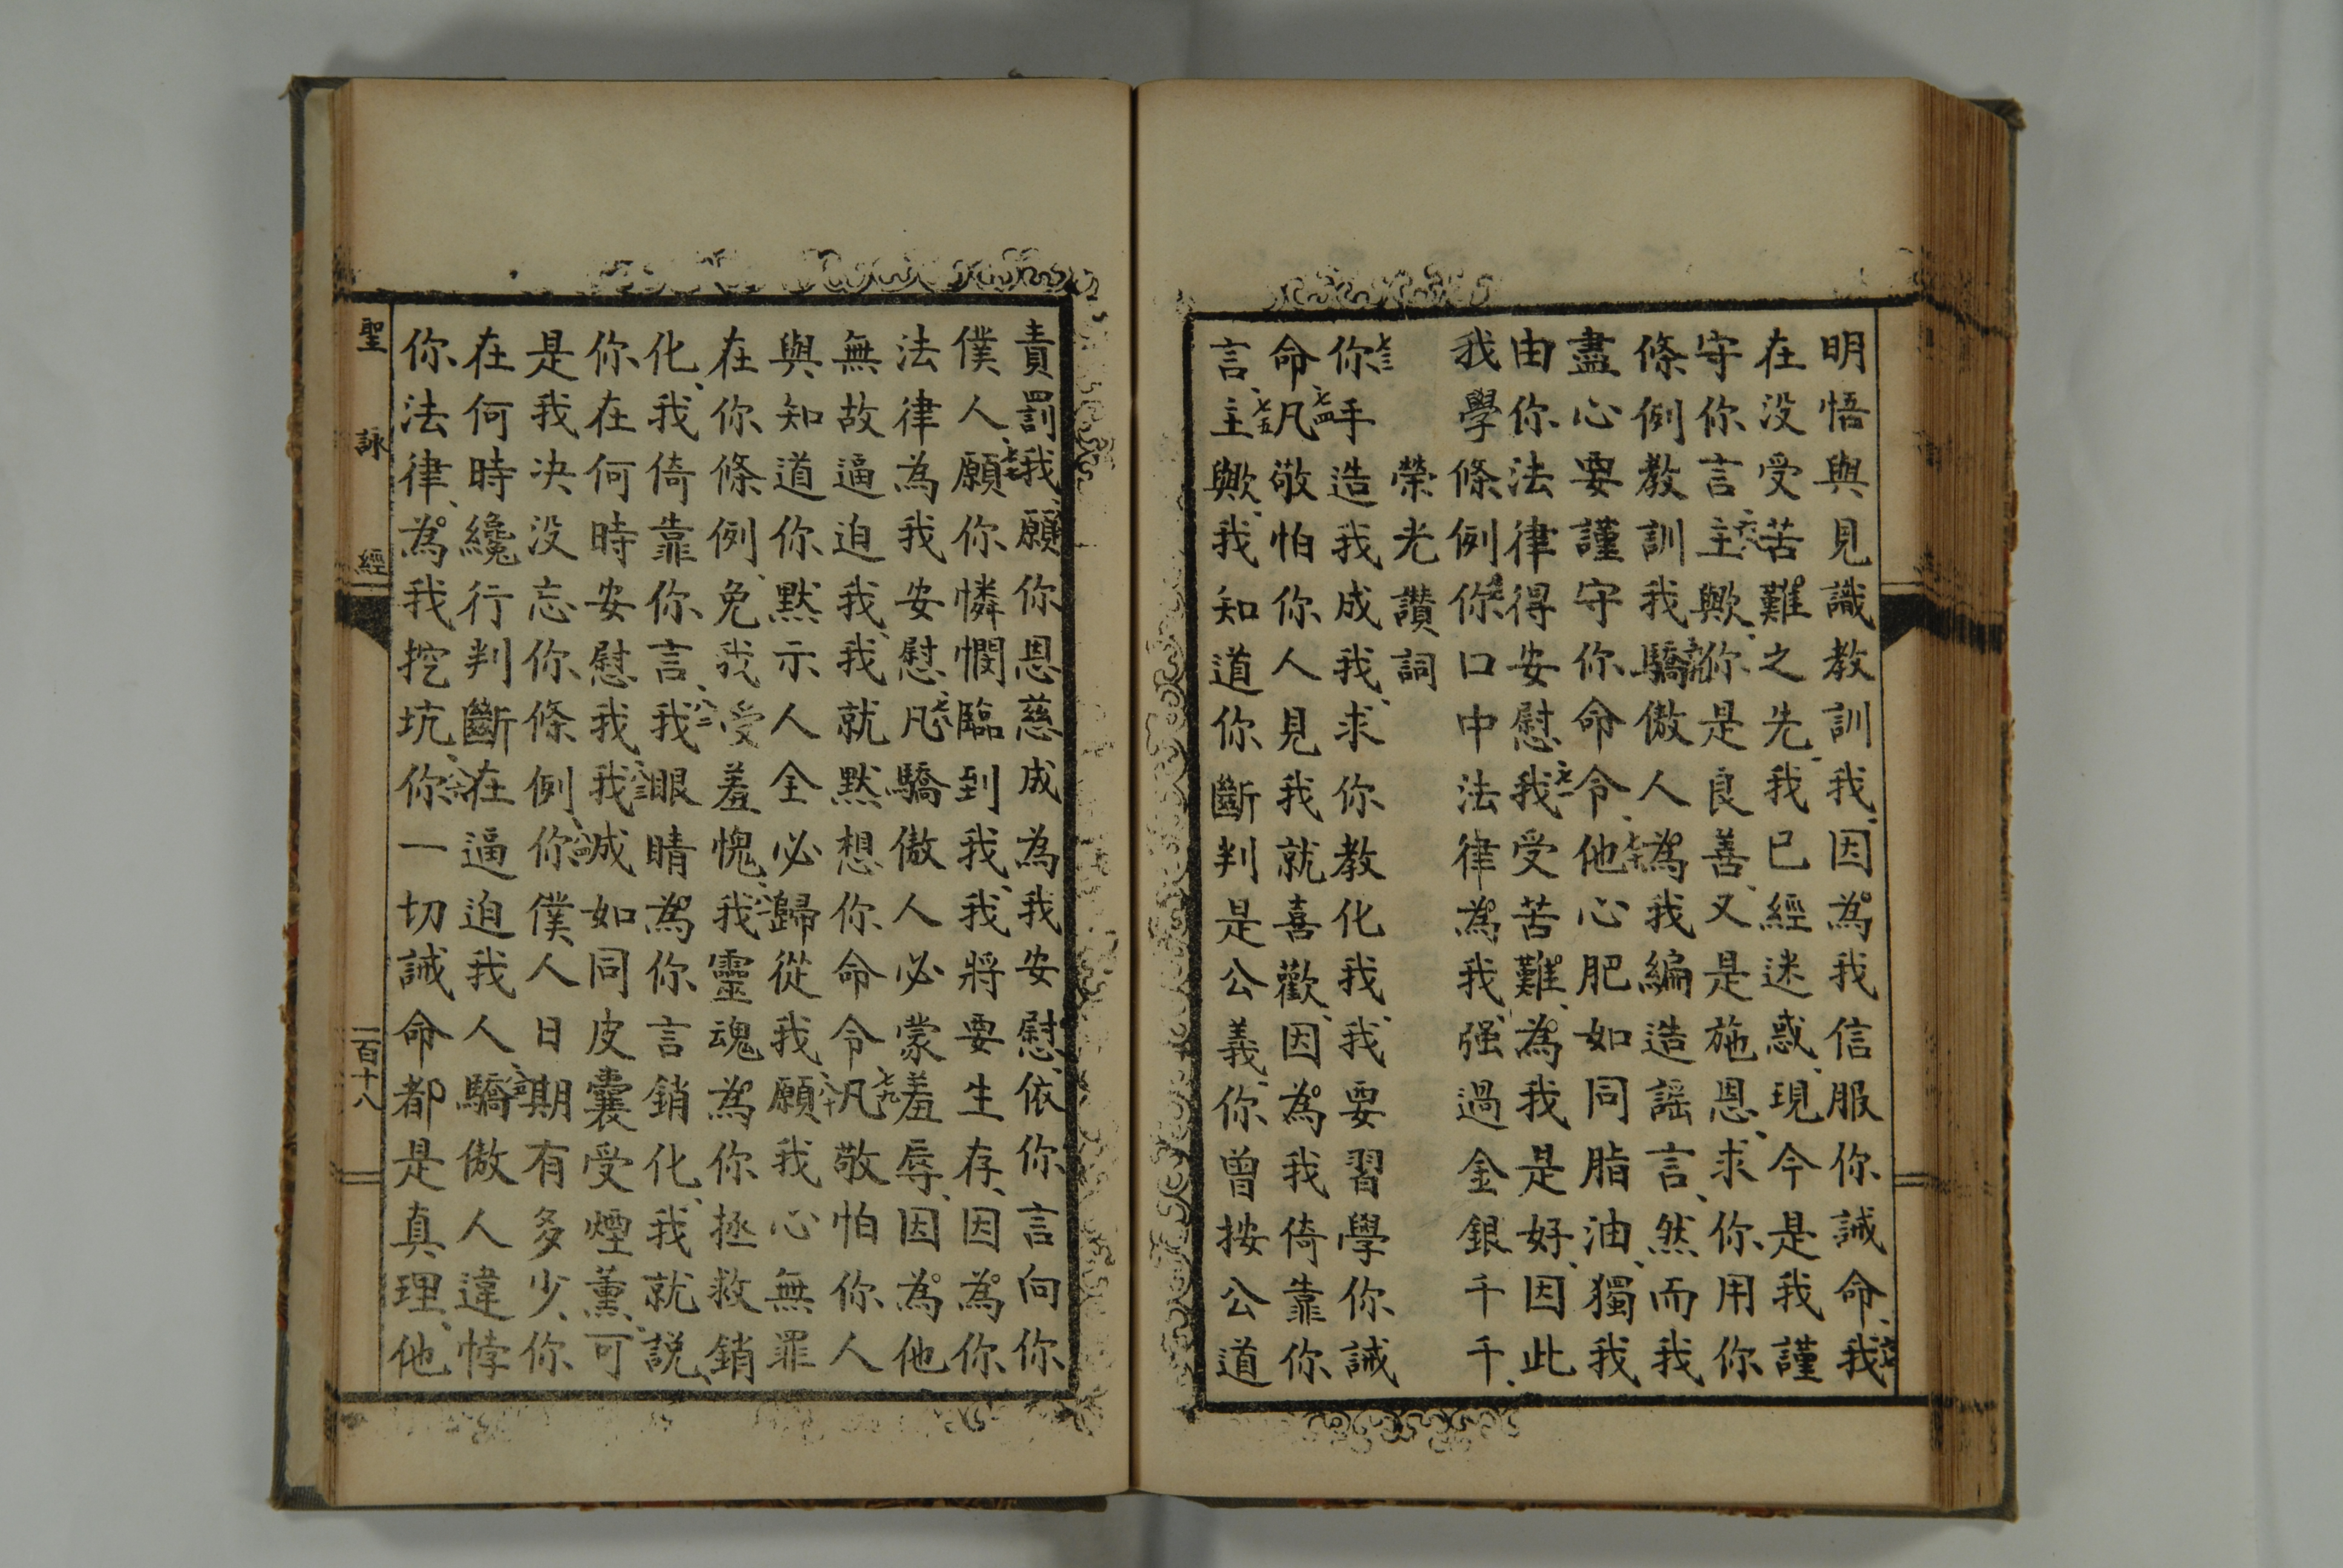 明悟與見識教訓我、因為我信服你誡命、六七我
在没受苦難之先、我已經迷惑、現今是我謹
守你言、六八主歟、你是良善、又是施恩、求你用你
條例教訓我、六九驕傲人為我編造謡言、然而我
盡心要謹守你命令、七十他心肥如同脂油、獨我
由你法律得安慰、七一我受苦難、為我是好、因此
我學條例、七二你口中法律為我强過金銀千千、
榮光讚詞
七三你手造我成我、求你教化我、我要習學你誡
命、七四凡敬怕你人見我就喜歡、因為我倚靠你
言、七五主歟、我知道你斷判是公義、你曾按公道
責罰我、七六願你恩慈成為我安慰、依你言向你
僕人、七七願你憐憫臨到我、我將要生存、因為你
法律為我安慰、七八凡驕傲人必蒙羞辱、因為他
無故逼迫我、我就默想你命令、七九凡敬怕你人
與知道你默示人全必歸從我、八十願我心無罪
在你條例、免我受羞愧、八一我靈魂為你拯救銷
化、我倚靠你言、八二我眼睛為你言銷化、我就説、
你在何時安慰我、八三我誠如同皮囊受煙薰、可
是我决没忘你條例、八四你僕人日期有多少、你
在何時纔行判斷在逼迫我人、八五驕傲人違悖
你法律、為我挖坑、八六你一切誡命都是真理、他
聖詠經
一百十八